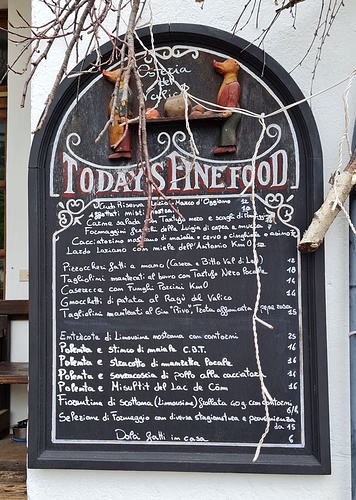 Osteria
del
Valico
TODAY'S FINE FOOD
Crudo Riserva Marco d'Oggiono 12
Affettati misti nostrani 14
Carne salada con Tartufo nero e scaglie di
Formaggini freschi della Luigia di capra e mucca
Cacciatorino nostrano di maiale e cervo o cinghiale o asino
Lardo Laziano con miele dell'Antonio Km0
Pizzoccheri fatti a mano (Casera e Bitto Val di Lei) 12
Tagliolini mantecati al burro con Tartufo Nero Pocale 18
Caserecce con Funghi Porcini Km0 16
Gnocchetti di patata al Ragù del Valico 14
Tagliolina mantecati al Gin "Rivo", Trota affumicata, pepe rosa 15
Entrecote di Limousine nostrana con contorni 25
Polenta e stinco di maiale C.B.T. 16
Polenta e stracotto di manzetta Pocale 16
Polenta e sovracoscia di pollo alla cacciatora 14
Polenta e Missultit del Lac de Còm 16
Fiorentina di scottona (Limousine) frollata 40g con contorni
6/h
Selezione di Formaggio con diversa stagionatura e provenienza
da 15
Dolci fatti in casa 6